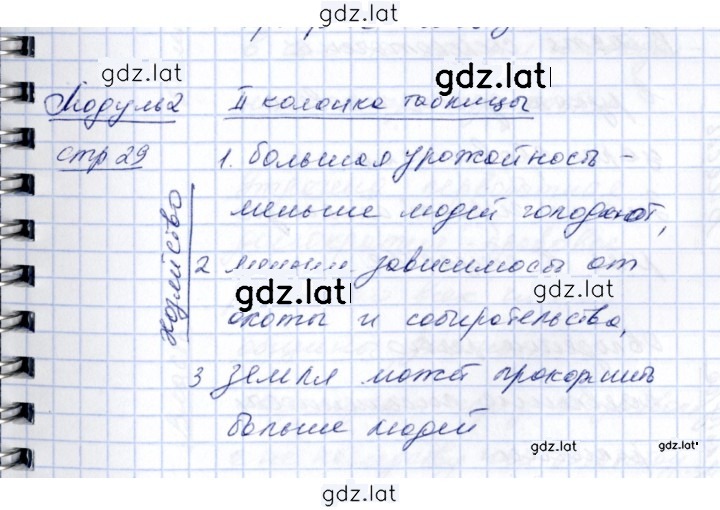 gdz.lat
gdz.lat
gdz.lat
Модуль 2 II колонка таблицы
стр 29 1. большая урожайность -
меньше людей голодают,
Хозяйство
2 зависимость от
gdz.lat
gdz.lat
охоты и собирательства,
3 Земля может прокормить
больше людей
gdz.lat
gdz.lat
gdz.lat